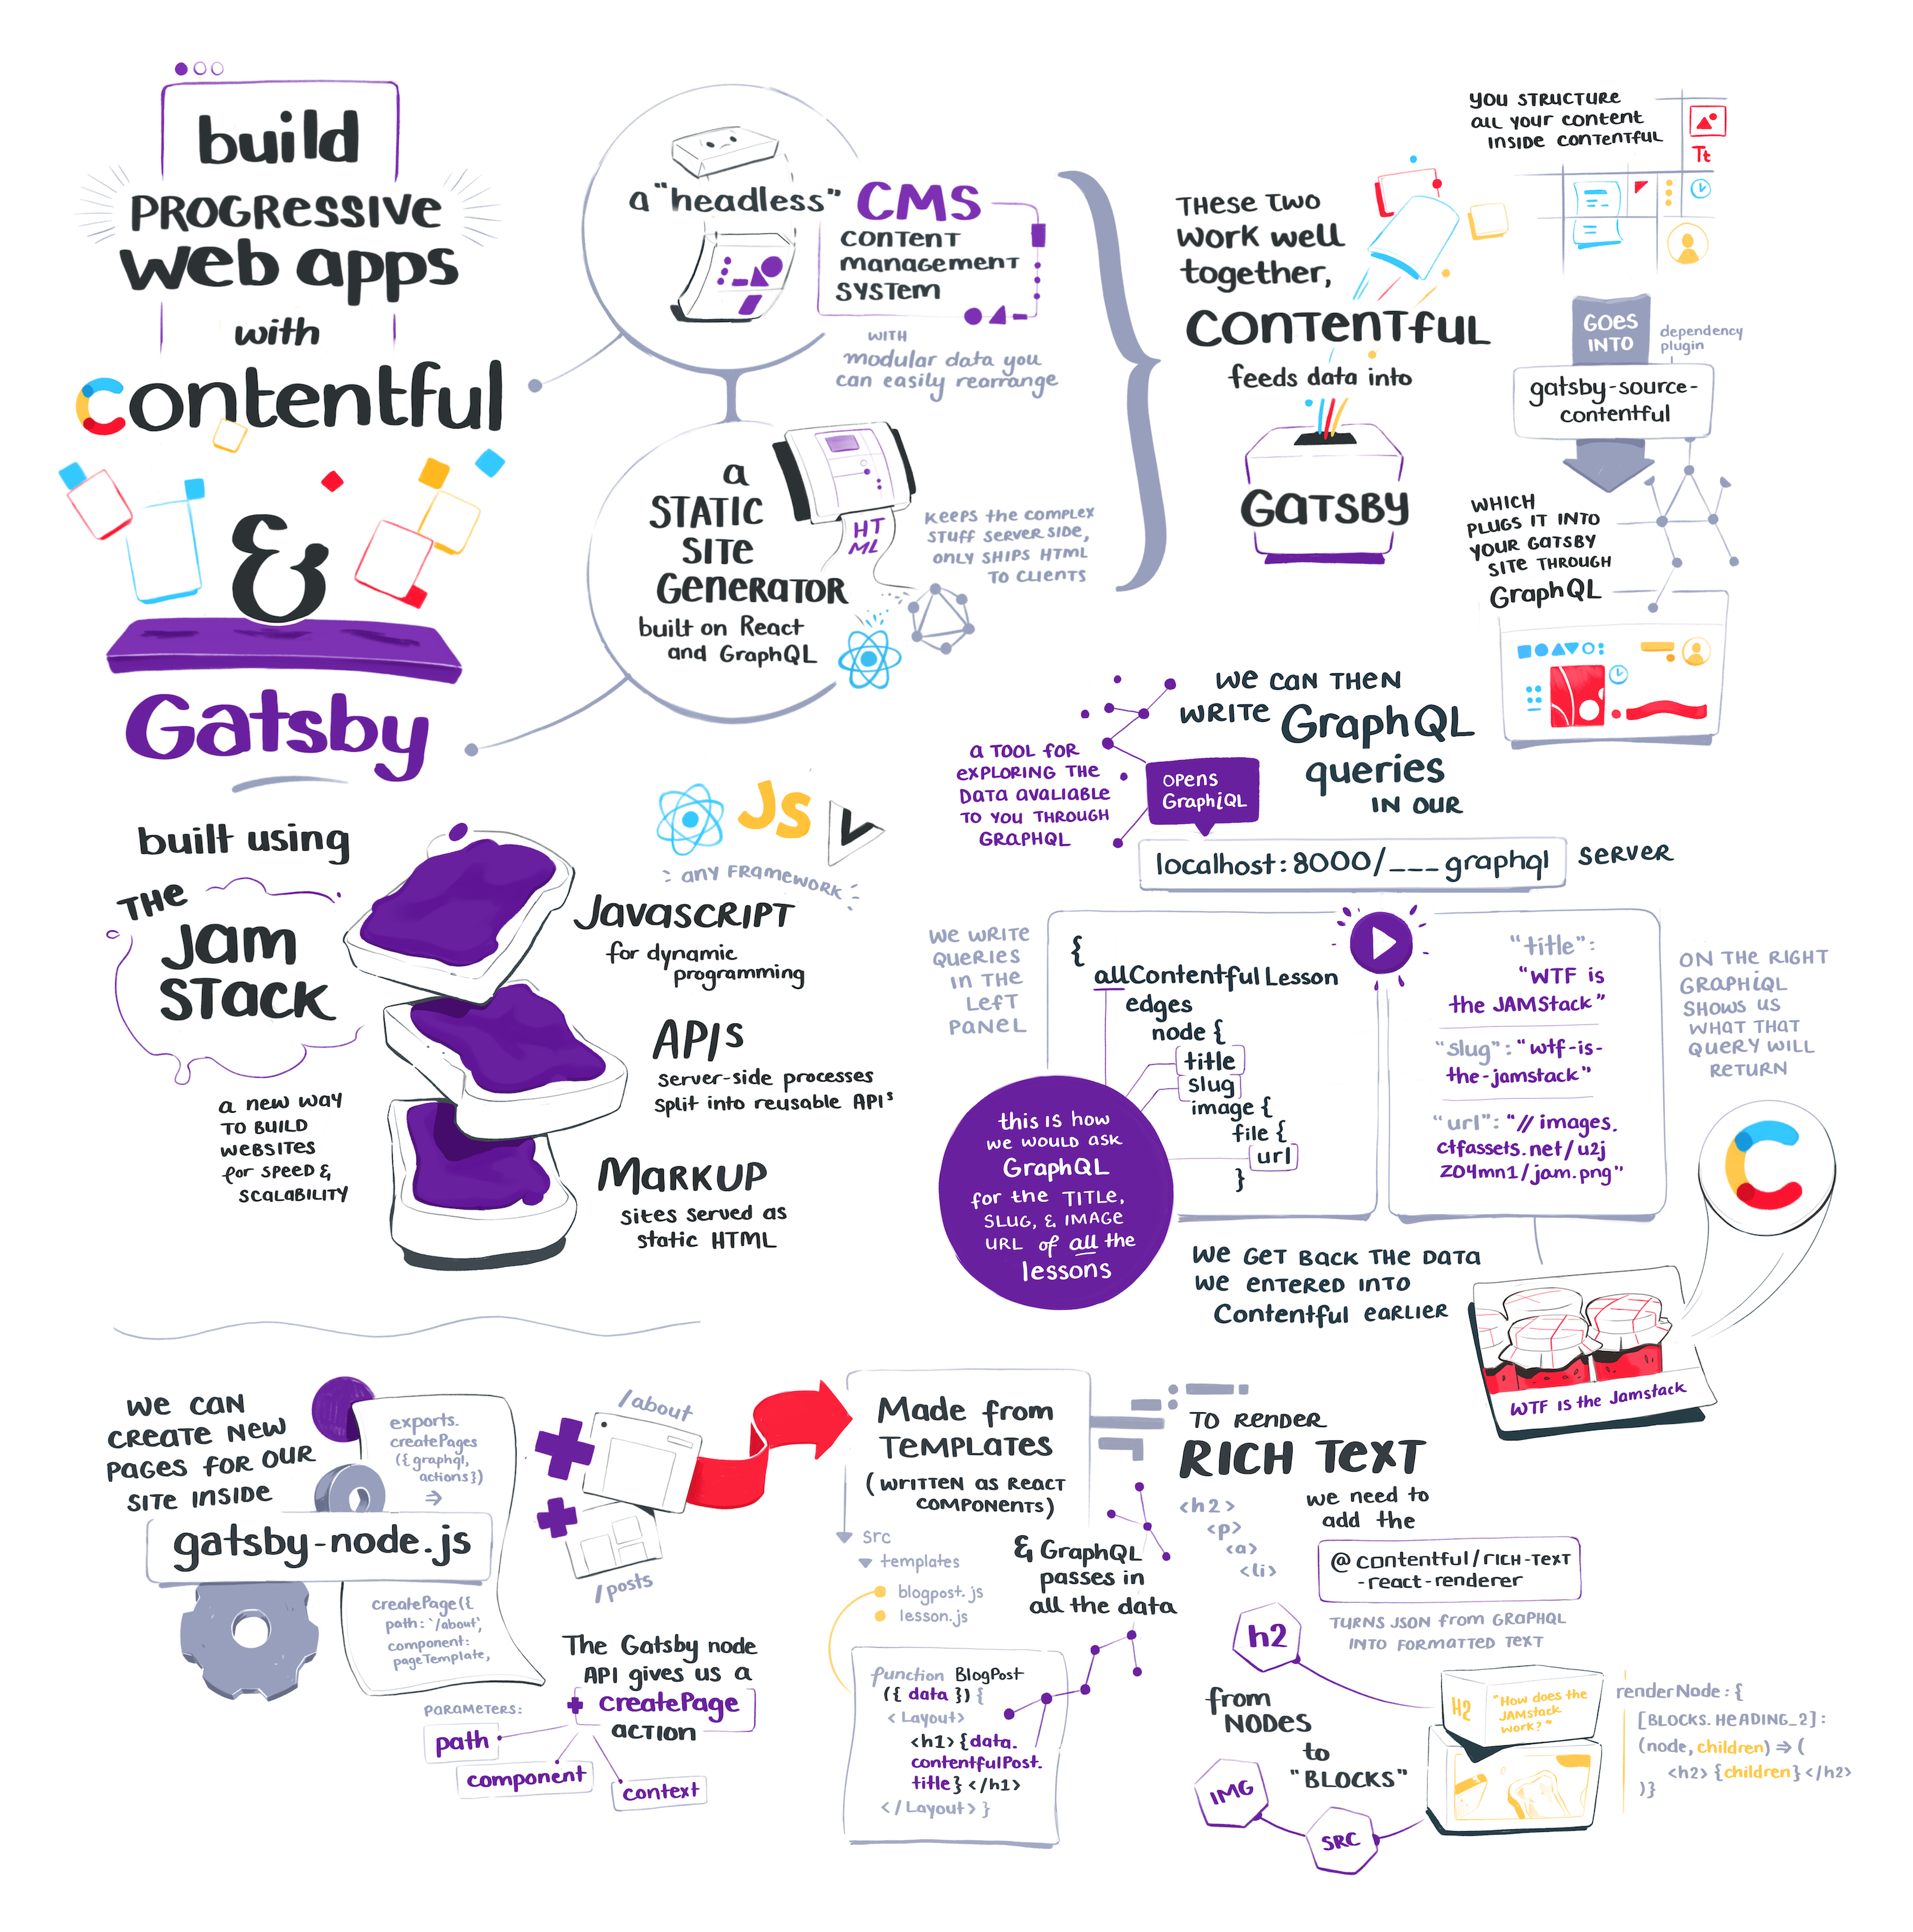 build
PROGRESSIVE
web apps
with
contentful
&
Gatsby
a "headless" CMS
content
management
system
with
modular data you
can easily rearrange
a
STATIC
SITE
GENERATOR
built on React
and GraphQL
HT
ML
keeps the complex
stuff server side,
only ships HTML
to clients
These two
work well
together,
Contentful
feeds data into
GATSBY
you structure
all your content
inside contentful
Tt
GOES
INTO
dependency
plugin
gatsby-source-
contentful
WHICH
PLUGS IT INTO
YOUR GATSBY
SITE THROUGH
GraphQL
built using
THE
Jam
STack
a new way
to build
websites
for speed &
scalability
JS
any framework
Javascript
for dynamic
programming
APIs
server-side processes
split into reusable APIs
Markup
sites served as
static HTML
we can then
write GraphQL
queries
in our
a tool for
exploring the
data avaliable
to you through
GRAPHQL
opens
GraphiQL
localhost:8000/___graphql
server
we write
queries
in the
left
panel
{
allContentfulLesson
edges
node {
title
slug
image {
file {
url
}
this is how
we would ask
GraphQL
for the title,
slug, & image
url of all the
lessons
"title":
"WTF is
the JAMStack"
"slug": "wtf-is-
the-jamstack"
"url": "// images.
ctfassets.net/u2j
ZO4mn1/jam.png"
on the right
GRAPHiQL
shows us
what that
query will
return
we get back the data
we entered into
Contentful earlier
WTF is the Jamstack
we can
create new
pages for our
site inside
gatsby-node.js
exports.
createPages
({graphql,
actions})
⇒
createPage({
path: `/about`,
component:
pageTemplate,
/about
/posts
The Gatsby node
API gives us a
createPage
action
parameters:
path
component
context
Made from
templates
(written as React
components)
src
templates
blogpost.js
lesson.js
& GraphQL
passes in
all the data
function BlogPost
({ data }) {
<Layout>
<h1>{data.
contentfulPost.
title} </h1>
</Layout> }
to render
RICH TEXT
<h2>
<p>
<a>
<li>
we need to
add the
@contentful/rich-text
-react-renderer
turns JSON from GRAPHQL
into formatted text
h2
from
NODES
to
"BLOCKS"
IMG
SRC
H2
"How does the
JAMstack
work?"
renderNode: {
[BLOCKS.HEADING_2]:
(node, children) ⇒ (
<h2> {children} </h2>
)}